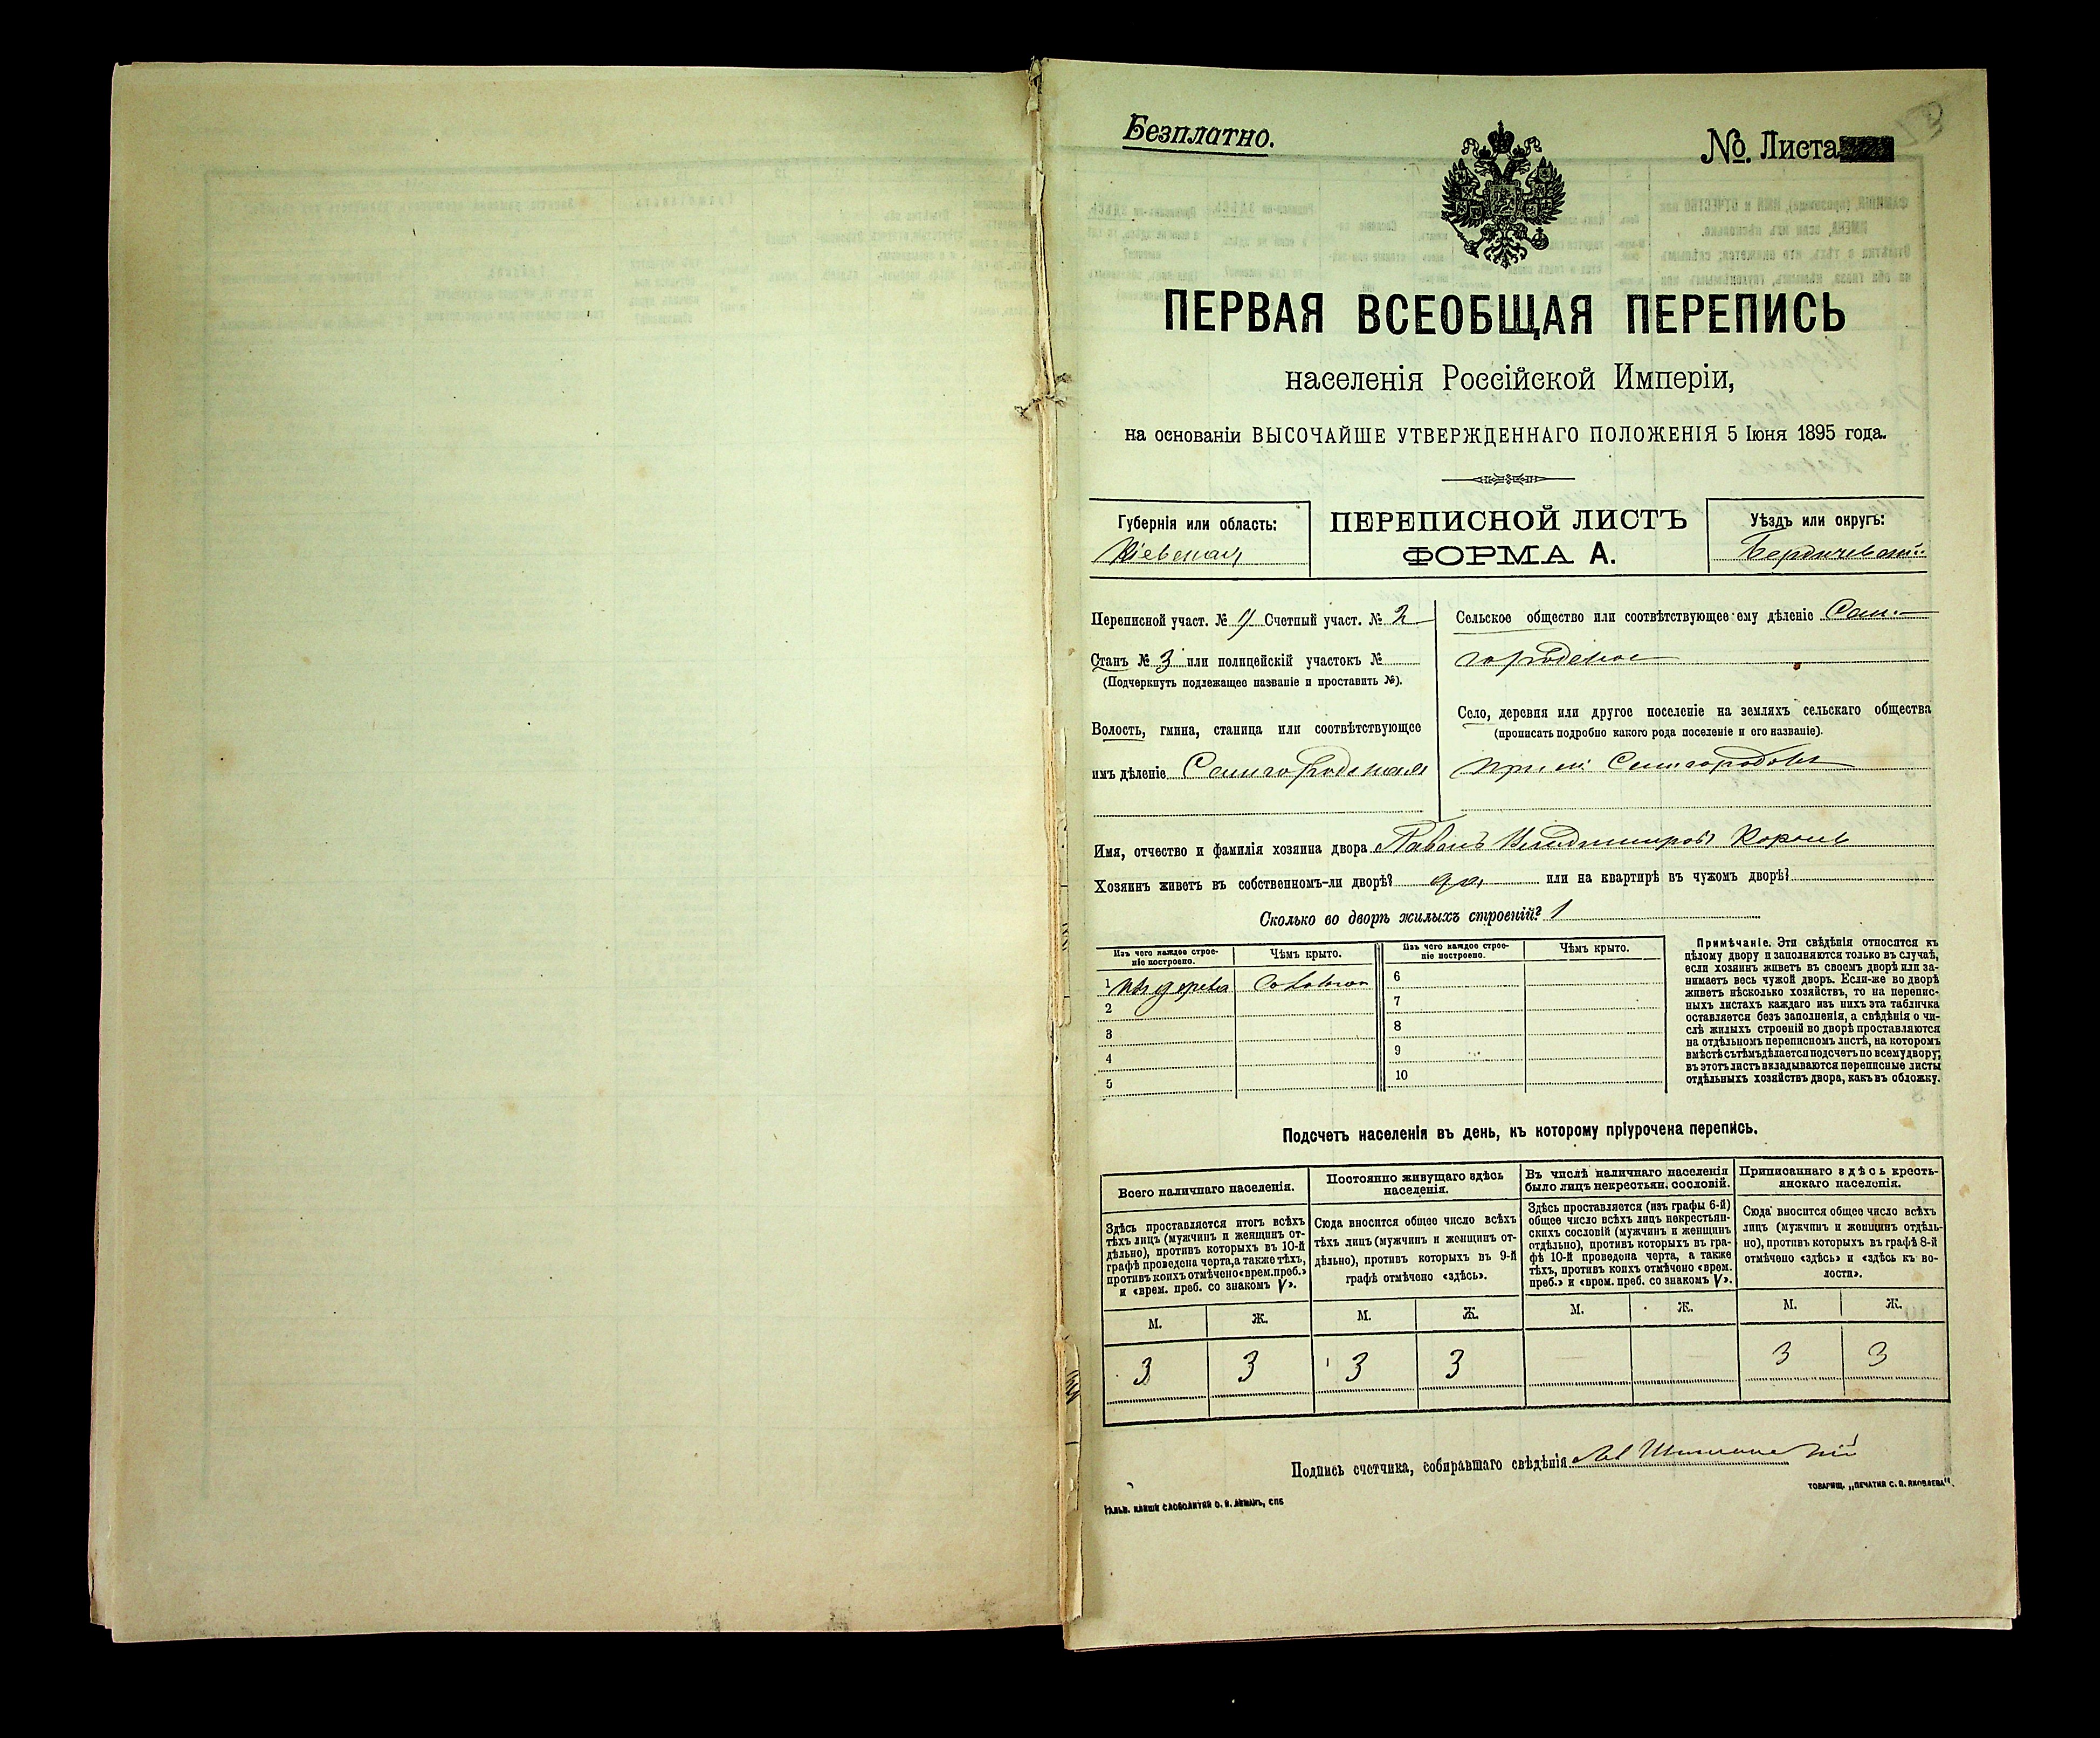 Безплатно.
№. Листа
ПЕРВАЯ ВСЕОБЩАЯ ПЕРЕПИСЬ
населенія Россійской Имперіи,
на основаніи ВЫСОЧАЙШЕ УТВЕРЖДЕННАГО ПОЛОЖЕНІЯ 5 Іюня 1895 года.
Губернія или область:
Кіевская
ПЕРЕПИСНОЙ ЛИСТЪ
ФОРМА А.
Уѣздъ или округъ:
Бердичевскій
Переписной участ. № Счетный участ. № 2
Станъ № 3 или полицейскій участокъ №
(Подчеркнуть подлежащее названіе и проставить №).
Волость, гмина, станица или соотвѣтствующее
имъ дѣленіе Самгородская
Сельское общество или соотвѣтствующее ему дѣленіе Сам-
городское
Село, деревня или другое поселеніе на земляхъ сельскаго общества
(прописать подробно какого рода поселеніе и его названіе).
Имя, отчество и фамилія хозяина двора Король
Хозяинъ живетъ въ собственномъ-ли дворѣ? да или на квартирѣ въ чужомъ дворѣ?
Сколько во дворѣ жилыхъ строеній? 1
Изъ чего каждое строе-
ніе построено.
Чѣмъ крыто.
Изъ чего каждое строе-
ніе построено.
Чѣмъ крыто.
1 изъ дерева Соломою
2
3
4
5
6
7
8
9
10
Примѣчаніе. Эти свѣдѣнія относятся къ
цѣлому двору и заполняются только въ случаѣ,
если хозяинъ живетъ въ своемъ дворѣ или за-
нимаетъ весь чужой дворъ. Если-же во дворѣ
живетъ нѣсколько хозяйствъ, то на перепис-
ныхъ листахъ каждаго изъ нихъ эта табличка
оставляется безъ заполненія, а свѣдѣнія о чи-
слѣ жилыхъ строеній во дворѣ проставляются
на отдѣльномъ переписномъ листѣ, на которомъ
вмѣстѣ съ тѣмъ дѣлается подсчетъ по всему двору;
въ этотъ листъ вкладываются переписные листы
отдѣльныхъ хозяйствъ двора, какъ въ обложку.
Подсчетъ населенія въ день, къ которому пріурочена перепись.
Всего наличнаго населенія.
Постоянно живущаго здѣсь
населенія.
Въ числѣ наличнаго населенія
было лицъ некрестьян. сословій.
Приписаннаго здѣсь кресть-
янскаго населенія.
Здѣсь проставляется итогъ всѣхъ
тѣхъ лицъ (мужчинъ и женщинъ от-
дѣльно), противъ которыхъ въ 10-й
графѣ проведена черта, а также тѣхъ,
противъ коихъ отмѣчено «врем. преб.»
и «врем. преб. со знакомъ V».
Сюда вносится общее число всѣхъ
тѣхъ лицъ (мужчинъ и женщинъ от-
дѣльно), противъ которыхъ въ 9-й
графѣ отмѣчено «здѣсь».
Здѣсь проставляется (изъ графы 6-й)
общее число всѣхъ лицъ некрестьян-
скихъ сословій (мужчинъ и женщинъ
отдѣльно), противъ которыхъ въ гра-
фѣ 10-й проведена черта, а также
тѣхъ, противъ коихъ отмѣчено «врем.
преб.» и «врем. преб. со знакомъ V».
Сюда вносится общее число всѣхъ
лицъ (мужчинъ и женщинъ отдѣль-
но), противъ которыхъ въ графѣ 8-й
отмѣчено «здѣсь» и «здѣсь къ во-
лости».
М. Ж. М. Ж. М. Ж. М. Ж.
3 3 3 3 3 3
Подпись счетчика, собиравшаго свѣдѣнія
ТОВАРИЩ. „ПЕЧАТНЯ С. П. ЯКОВЛЕВА".
ГАЛЬВ. КЛИШЕ СЛОВОЛИТНИ О. И. ЛЕМАНЪ, СПБ